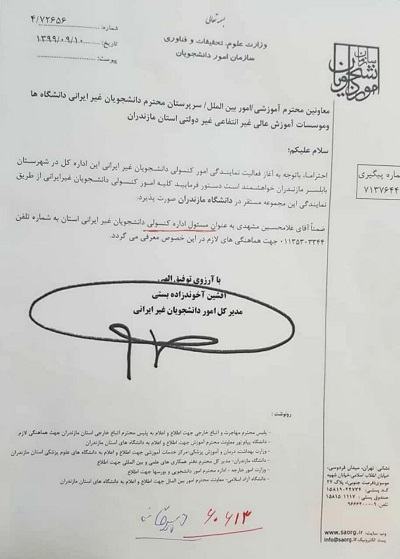 بسمه تعالی
وزارت علوم، تحقیقات و فناوری
سازمان امور دانشجویان
شماره: ۴/۷۲۶۵۶
تاریخ: ۱۳۹۹/۰۹/۱۰
پیوست:
سازمان امور دانشجویان
معاونین محترم آموزشی/امور بین الملل/ سرپرستان محترم دانشجویان غیر ایرانی دانشگاه ها
وموسسات آموزش عالی غیر انتفاعی غیر دولتی استان مازندران
سلام علیکم؛
احتراما، باتوجه به آغاز فعالیت نمایندگی امور کنسولی دانشجویان غیر ایرانی این اداره کل در شهرستان
بابلسر مازندران خواهشمند است دستور فرمایید کلیه امور کنسولی دانشجویان غیرایرانی از طریق
نمایندگی این مجموعه مستقر در دانشگاه مازندران صورت پذیرد.
ضمناً آقای غلامحسین مشهدی به عنوان مسئول اداره کنسولی دانشجویان غیر ایرانی استان به شماره تلفن
۰۱۱۳۵۳۰۳۳۴۴ جهت هماهنگی های لازم در این خصوص معرفی می گردد.
شماره پیگیری
۷۱۳۷۶۴۴
با آرزوی توفیق الهی
افشین آخوندزاده بستی
مدیر کل امور دانشجویان غیر ایرانی
رونوشت:
- پلیس محترم مهاجرت و اتباع خارجی جهت اطلاع و اعلام به پلیس محترم اتباع خارجی استان مازندران جهت هماهنگی لازم
- دانشگاه پیام نور معاونت محترم آموزش جهت اطلاع و اعلام به دانشگاه های استان مازندران
- وزارت بهداشت درمان و آموزش پزشکی-مرکز خدمات آموزشی جهت اطلاع و اعلام به دانشگاه های علوم پزشکی استان مازندران
- دانشگاه مازندران- مدیر کل محترم دفتر همکاری های علمی و بین المللی جهت اطلاع
- وزارت امور خارجه - اداره محترم امور دانشجویی و بورسها جهت اطلاع
- دانشگاه آزاد اسلامی- معاونت محترم امور بین الملل جهت اطلاع و اعلام به دانشگاه های استان مازندران
نشانی: تهران، میدان فردوسی،
خیابان انقلاب اسلامی، خیابان شهید
موسوی(فرصت جنوبی)، پلاک ۲۴
وب سایت: www.saorg.ir
پست الکترونیک: info@saorg.ir
۶۰۶۱۳